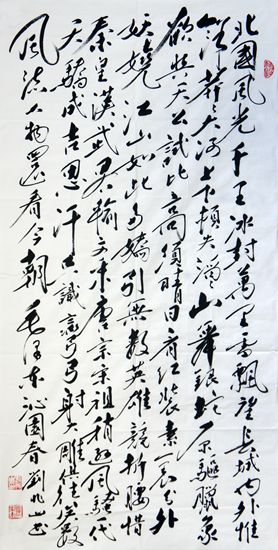 北國風光千里冰封萬里雪飄望長城內外惟
餘莽々大河上下頓失滔々山舞銀蛇原驅臘象
欲與天公試比高須晴日看紅裝素裹分外
妖嬈江山如此多嬌引無數英雄競折腰惜
秦皇漢武略輸文采唐宗宋祖稍遜風騷一代
天驕成吉思汗只識彎弓射大雕俱往矣數
風流人物還看今朝 毛澤東沁園春 劉兆山书